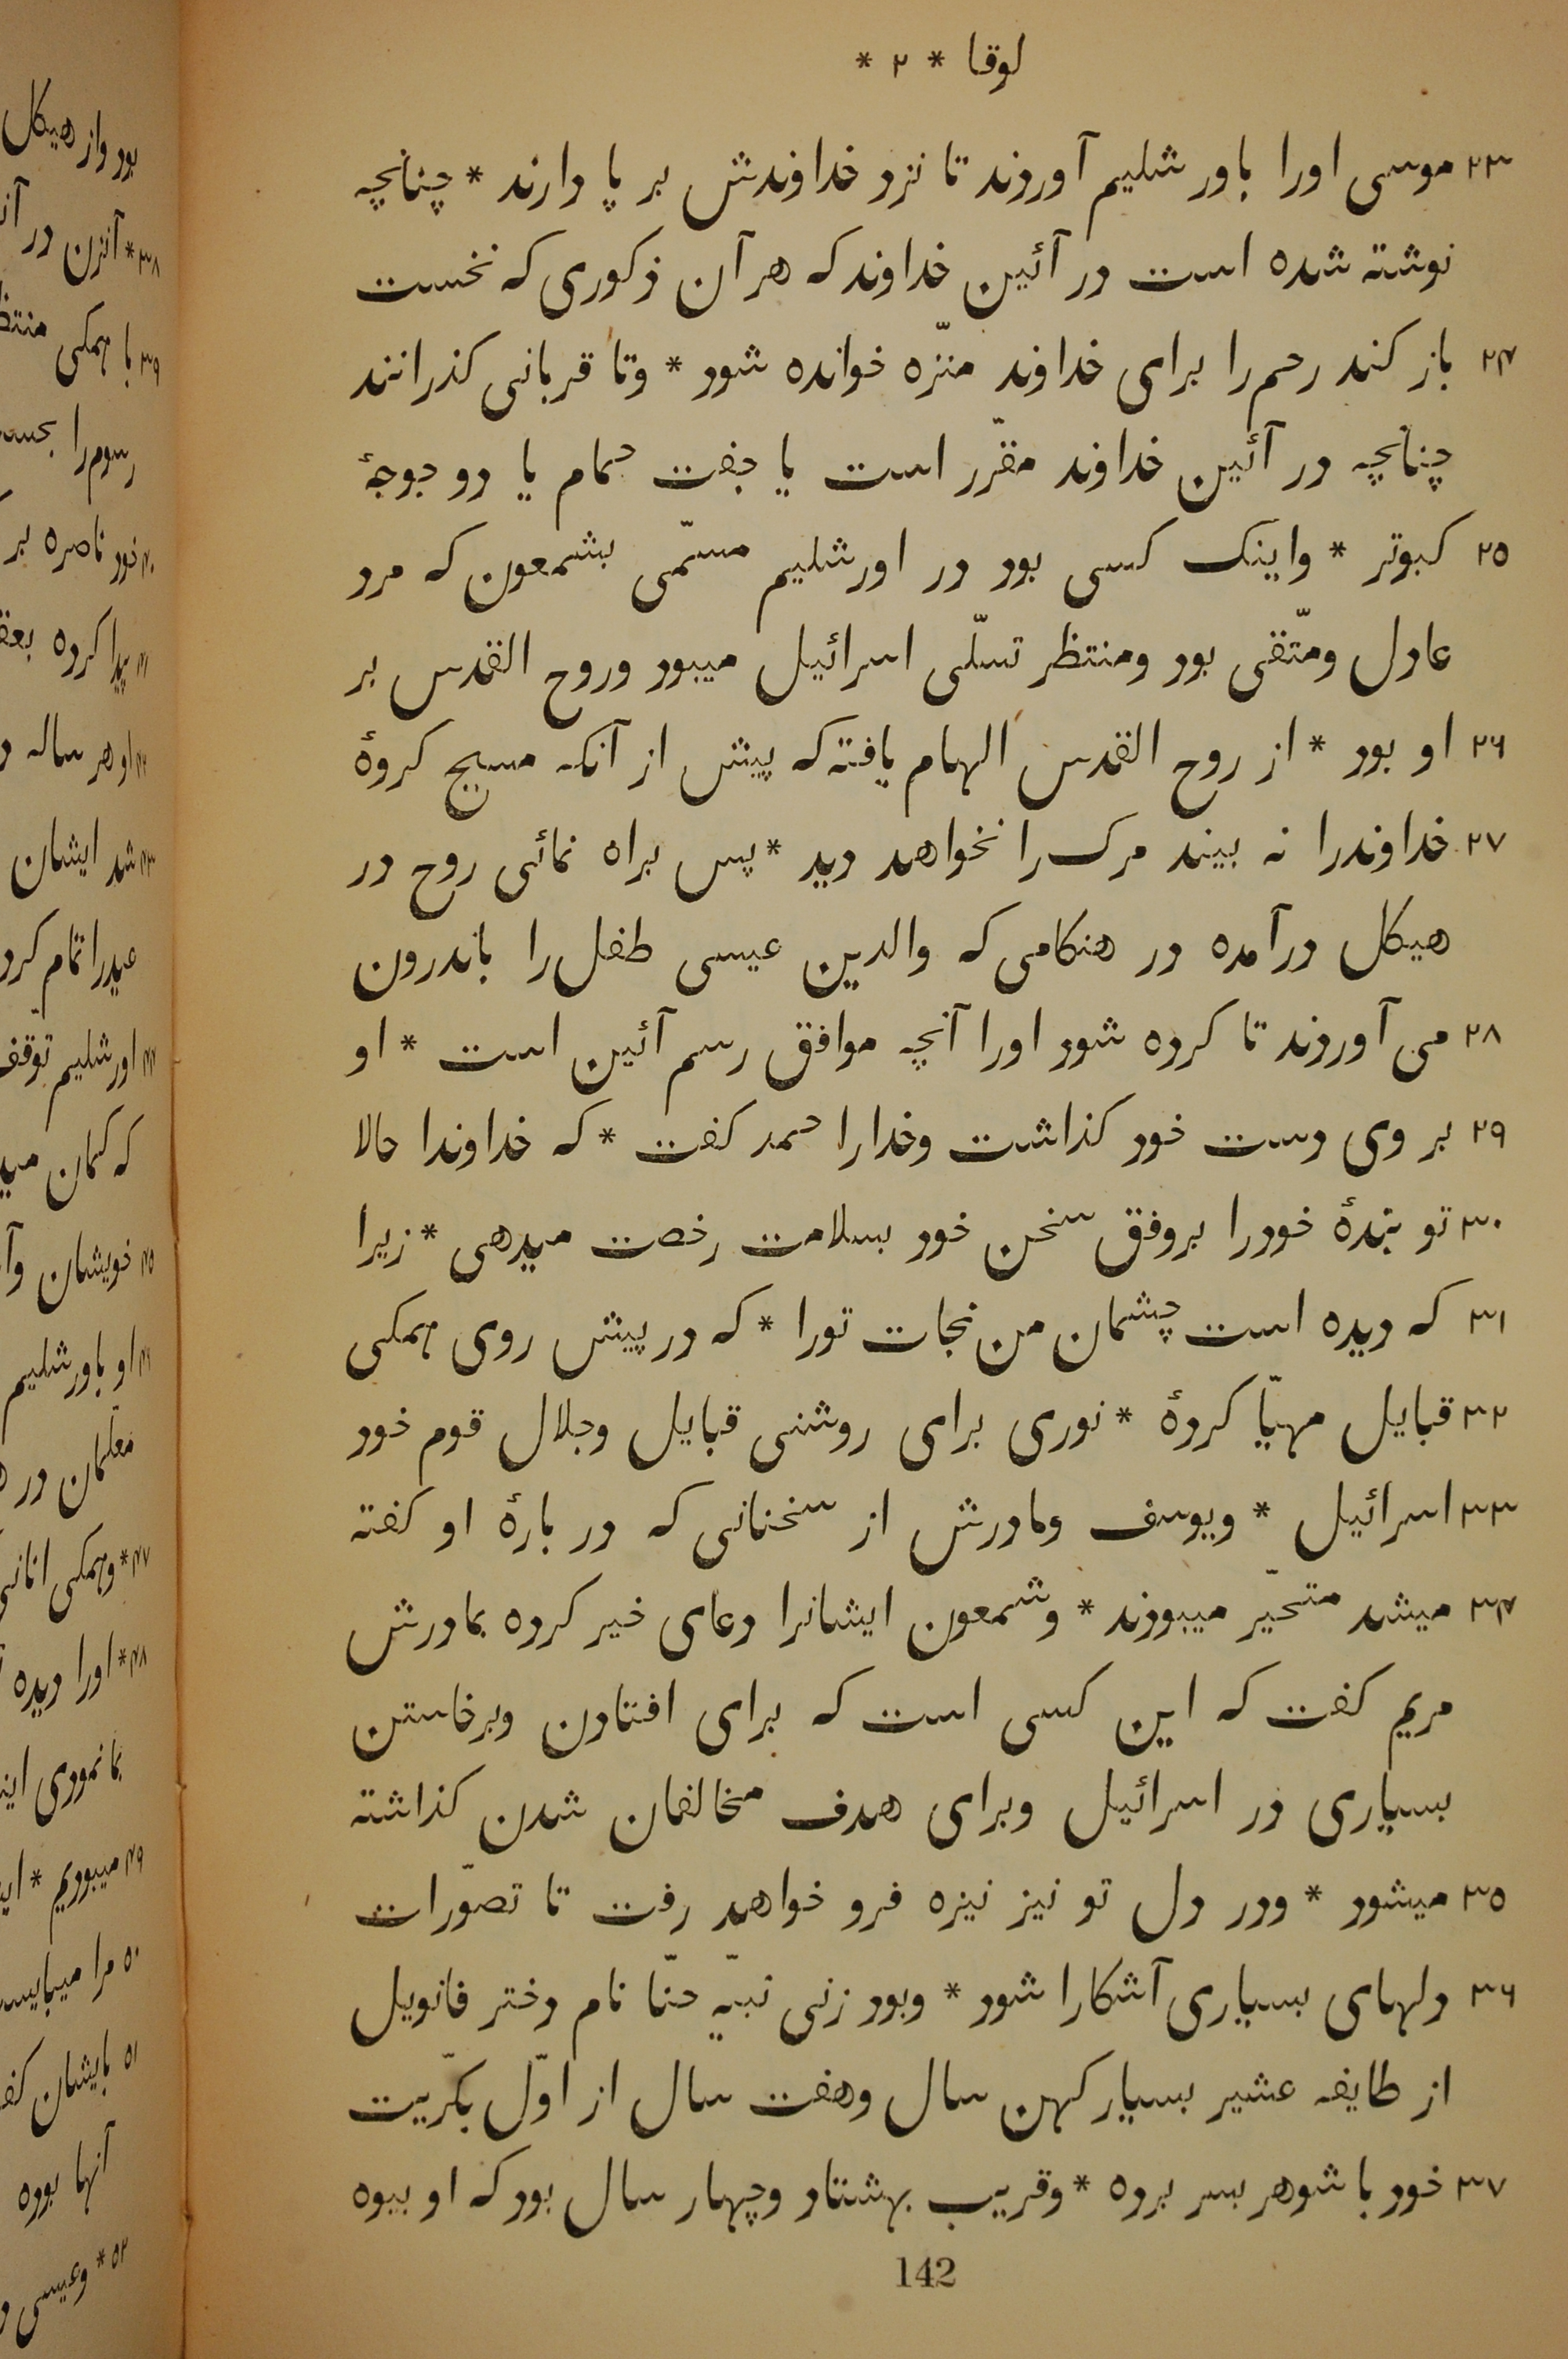 لوقا * ۲ *
۲۳ موسی اورا باور شلیم آوردند تا نزد خداوندش بر پا دارند * چنانچه
نوشته شده است در آئین خداوند که هر آن ذکوری که نخست
۲۴ باز کند رحم را برای خداوند منزّه خوانده شود * وتا قربانی کذرانند
چنانچه در آئین خداوند مقرّر است یا جفت حمام یا دو جوجهٔ
۲۵ کبوتر * واینک کسی بود در اورشلیم مسمّی بشمعون که مرد
عادل ومتّقی بود ومنتظر تسلّی اسرائیل میبود وروح القدس بر
۲۶ او بود * از روح القدس الهام یافته که پیش از آنکه مسیح کردهٔ
۲۷ خداوندرا نه بیند مرک را نخواهد دید * پس براه نمائی روح در
هیکل درآمده در هنکامی که والدین عیسی طفل را باندرون
۲۸ می آوردند تا کرده شود اورا آنچه موافق رسم آئین است * او
۲۹ بر وی دست خود کذاشت وخدارا حمد کفت * که خداوندا حالا
۳۰ تو بندهٔ خودرا بروفق سخن خود بسلامت رخصت میدهی * زیرا
۳۱ که دیده است چشمان من نجات تورا * که در پیش روی همکی
۳۲ قبایل مهیّا کردهٔ * نوری برای روشنی قبایل وجلال قوم خود
۳۳ اسرائیل * ویوسف ومادرش از سخنانی که در بارهٔ او کفته
۳۴ میشد متحیّر میبودند * وشمعون ایشانرا دعای خیر کرده بمادرش
مریم کفت که این کسی است که برای افتادن وبرخاستن
بسیاری در اسرائیل وبرای هدف مخالفان شدن کذاشته
۳۵ میشود * ودر دل تو نیز نیزه فرو خواهد رفت تا تصوّرات
۳۶ دلهای بسیاری آشکارا شود * وبود زنی نبیّه حنّا نام دختر فانویل
از طایفه عشیر بسیار کهن سال وهفت سال از اوّل بکریّت
۳۷ خود با شوهر بسر برده * وقریب بهشتاد وچهار سال بود که او بیوه
142
بود واز هیکل
۳۸ * آنزن در
۳۹ با همکی
رسوم را
۴۰ خود ناصره بر
۴۱ پیدا کرده
۴۲ او هر ساله
۴۳ شد ایشان
عیدرا تمام کرد
۴۴ اورشلیم توقّف
که کمان
۴۵ خویشان
۴۶ او باورشلیم
معلّمان در
۴۷ * وهمکی
۴۸ * اورا دیده
بما نمودی
۴۹ میبودیم *
۵۰ مرا
۵۱ بایشان
آنها بوده
۵۲ * وعیسی